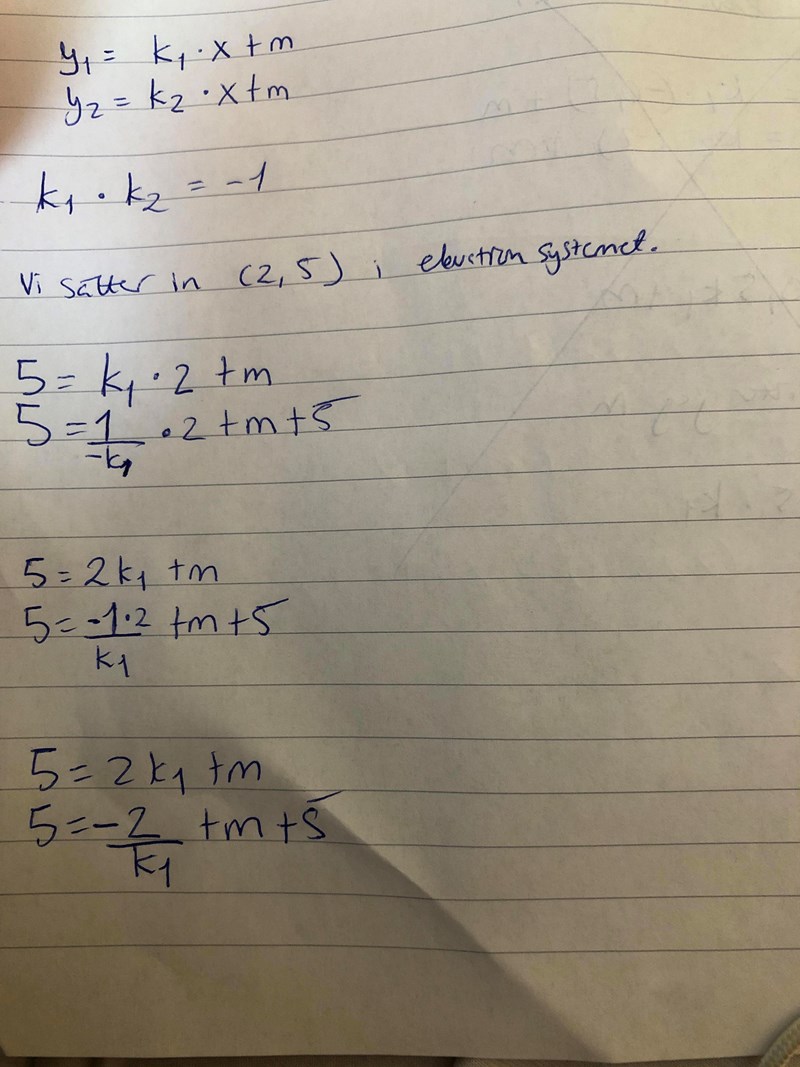 y₁ = k₁ · x + m
y₂ = k₂ · x + m
k₁ · k₂ = -1
Vi sätter in (2, 5) i ekvation systemet.
5 = k₁ · 2 + m
5 = 1/-k₁ · 2 + m + 5
5 = 2k₁ + m
5 = -1·2/k₁ + m + 5
5 = 2k₁ + m
5 = -2/k₁ + m + 5